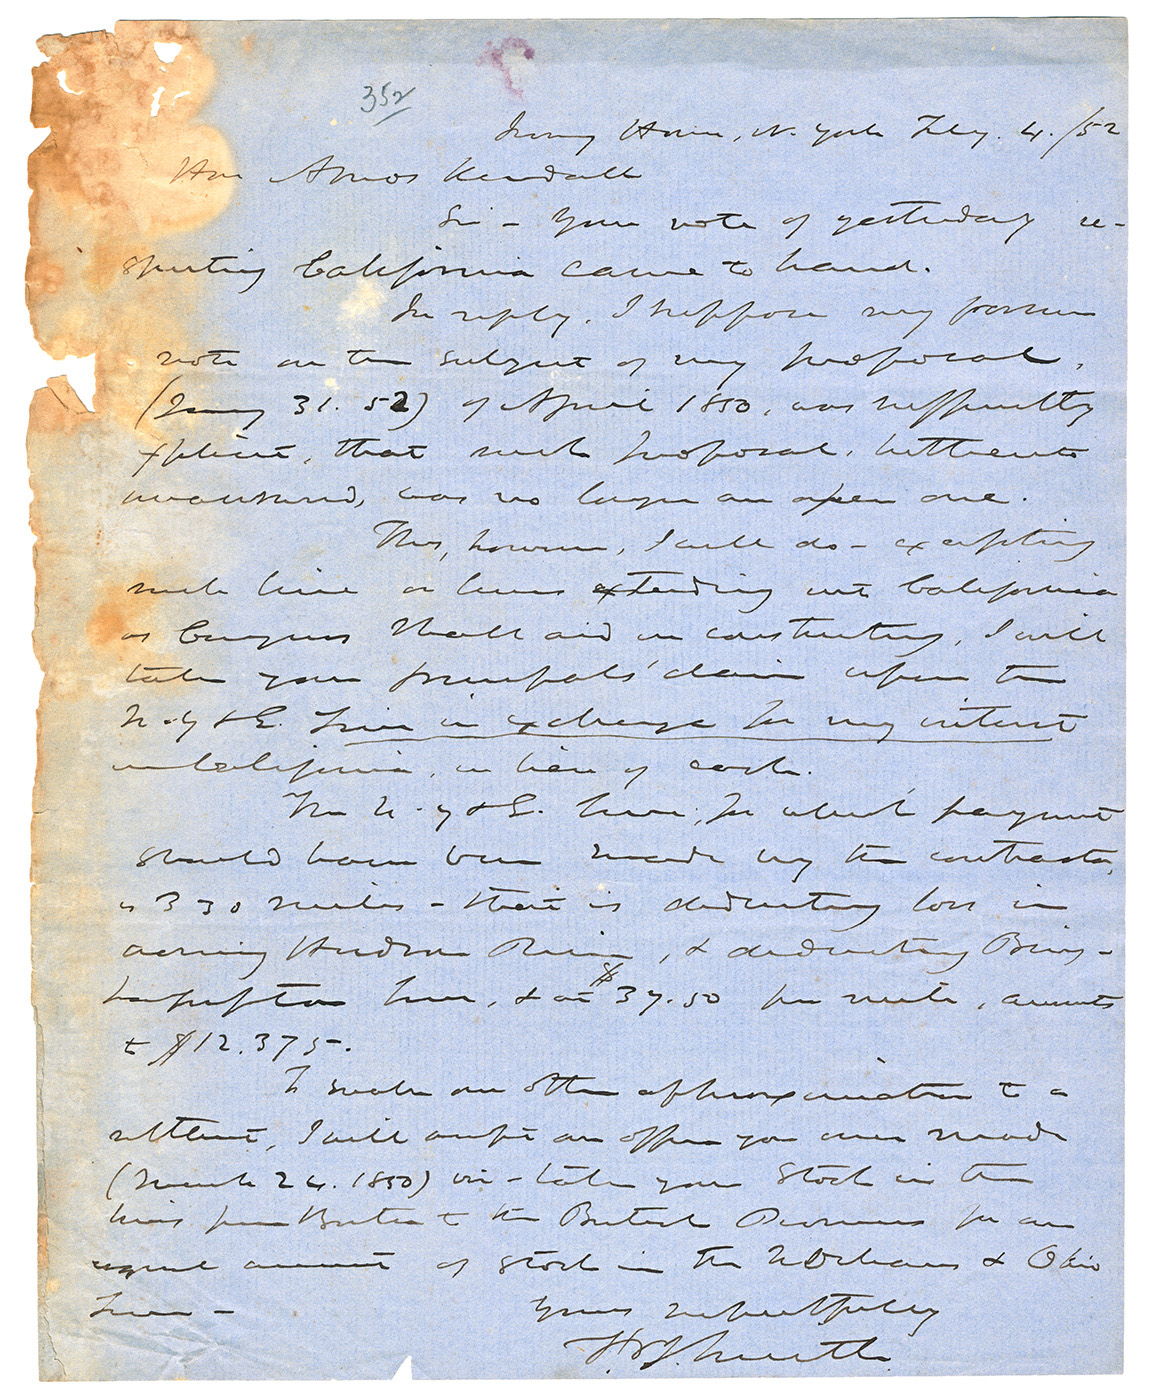 352
Irving House, N. York Feby. 4. /52
Hon Amos Kendall
Sir - Your note of yesterday re-
specting California came to hand.
In reply, I suppose my former
note on the subject of my proposal,
(Jany 31. 52) of April 1850, was sufficiently
explicit, that such proposal, hitherto
unanswered, was no longer an open one.
This, however, I will do - excepting
such line or lines extending into California
as Congress shall aid in constructing, I will
take your principals' claim upon the
N-Y & E. Line in exchange for my interest
in California, in lieu of cash.
The N-Y & E. line, for which payment
should have been made by the contractor,
is 330 miles - that is deducting loss in
crossing Hudson River, & deducting Bing-
line, & at $37.50 per mile, amounts
to $12.375-.
To make an other approximation to a
settlement, I will accept an offer you once made
(March 24. 1850) viz - take your Stock in the
lines from Boston to the British Provinces for an
equal amount of Stock in the N Orleans & Ohio
Line -
Yours respectfully
F.O.J. Smith